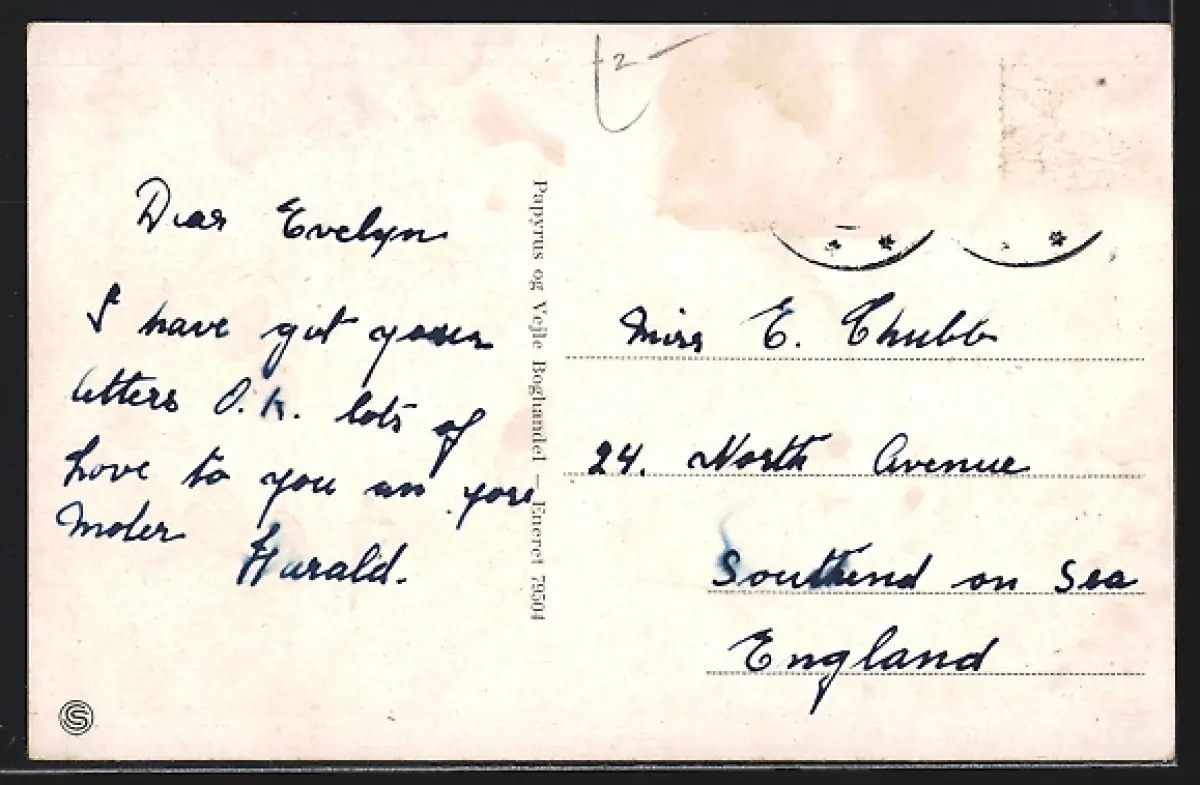 Dear Evelyn
I have got your
letters O.K. lots of
Love to you an yore
Moler
Harald.
Papyrus og Vejle Boghandel – Eneret 79504
Miss E. Chubb
24. North Avenue
Southend on Sea
England
2
S